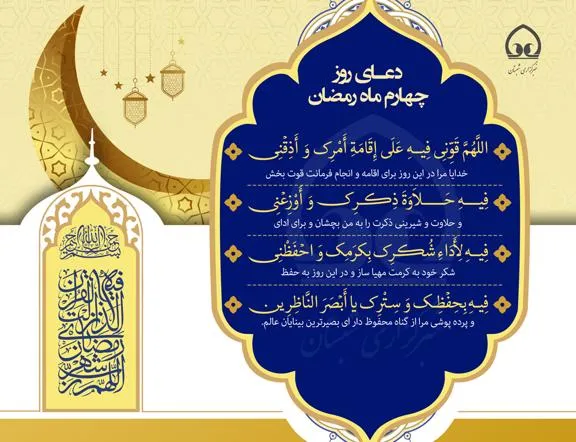 خبرگزاری شبستان
دعـای روز
چهارم ماه رمضان
اللَّهُمَّ قَوِّنِی فِیـهِ عَلَی إِقَامَةِ أَمْرِک وَ أَذِقْنِی
خدایا مرا در این روز برای اقامه و انجام فرمانت قوت بخش
فِیـهِ حَـلاَوَةَ ذِکْـرِک وَ أَوْزِعْنِی
و حلاوت و شیرینی ذکرت را به من بچشان و برای ادای
فِیـهِ لأَدَاءِ شُکْـرِک بِکَرَمِک وَ احْفَظْنِی
شکر خود به کرمت مهیا ساز و در این روز به حفظ
فِیهِ بِحِفْظِک وَ سِتْرِک یا أَبْصَرَ النَّاظِرِین.
و پرده پوشی مرا از گناه محفوظ دار ای بصیرترین بینایان عالم.
بسم الله الرحمن الرحیم
اللهم رب شهر رمضان الذی انزلت فیه القرآن
خبرگزاری شبستان